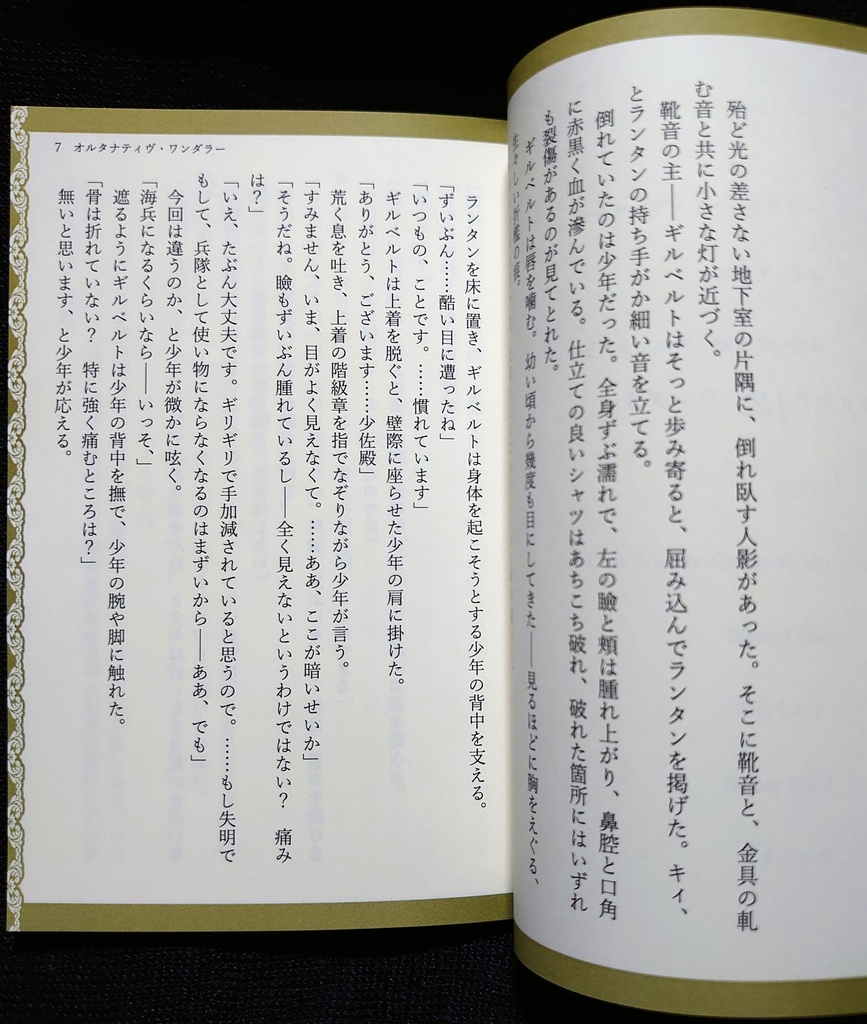 殆ど光の差さない地下室の片隅に、倒れ臥す人影があった。そこに靴音と、金具の軋
む音と共に小さな灯が近づく。
靴音の主――ギルベルトはそっと歩み寄ると、屈み込んでランタンを掲げた。キィ、
とランタンの持ち手がか細い音を立てる。
倒れていたのは少年だった。全身ずぶ濡れで、左の瞼と頬は腫れ上がり、鼻腔と口角
に赤黒く血が滲んでいる。仕立ての良いシャツはあちこち破れ、破れた箇所にはいずれ
も裂傷があるのが見てとれた。
ギルベルトは唇を噛む。幼い頃から幾度も目にしてきた――見るほどに胸をえぐる、
生々しい折檻の痕。
7 オルタナティヴ・ワンダラー
ランタンを床に置き、ギルベルトは身体を起こそうとする少年の背中を支える。
「ずいぶん……酷い目に遭ったね」
「いつもの、ことです。……慣れています」
ギルベルトは上着を脱ぐと、壁際に座らせた少年の肩に掛けた。
「ありがとう、ございます……少佐殿」
荒く息を吐き、上着の階級章を指でなぞりながら少年が言う。
「すみません、いま、目がよく見えなくて。……ああ、ここが暗いせいか」
「そうだね。瞼もずいぶん腫れているし――全く見えないというわけではない？　痛み
は？」
「いえ、たぶん大丈夫です。ギリギリで手加減されていると思うので。……もし失明で
もして、兵隊として使い物にならなくなるのはまずいから――ああ、でも」
今回は違うのか、と少年が微かに呟く。
「海兵になるくらいなら――いっそ、」
遮るようにギルベルトは少年の背中を撫で、少年の腕や脚に触れた。
「骨は折れていない？　特に強く痛むところは？」
無いと思います、と少年が応える。